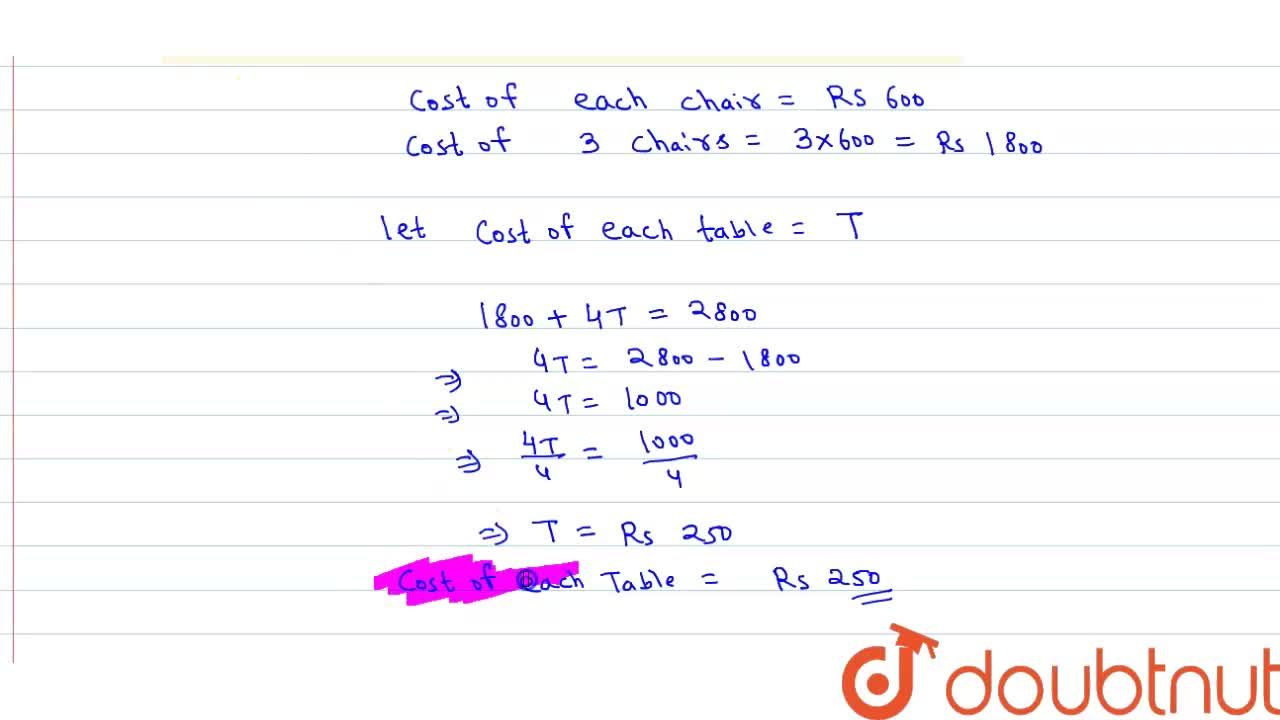 Cost of each chair = Rs 600
Cost of 3 chairs = 3×600 = Rs 1800
let cost of each table = T
1800 + 4T = 2800
⇒ 4T = 2800 - 1800
⇒ 4T = 1000
⇒ 4T/4 = 1000/4
⇒ T = Rs 250
Cost of each Table = Rs 250
doubtnut